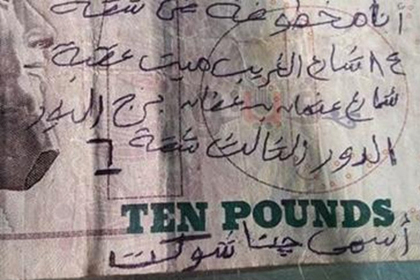 أنا مخطوفة في شقة
٤ شارع الغريب ميت عقبة
شارع عثمان بن عفان برج النور
الدور الثالث شقة 6
TEN POUNDS
أسمى چنا شوكت